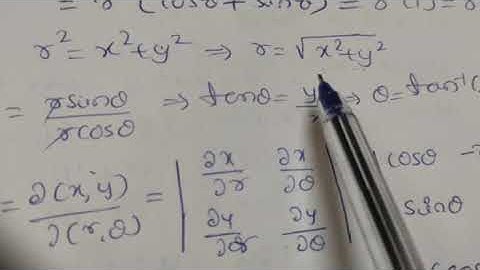 = r (cosθ + sinθ) = r (1) = r
r² = x² + y² ⇒ r = √x²+y²
= rsinθ / rcosθ ⇒ tanθ = y/ ⇒ θ = tan⁻¹(
= ∂(x, y) / ∂(r, θ) = | ∂x/∂r ∂x/∂θ | cosθ -
| ∂y/∂r ∂y/∂θ | sinθ